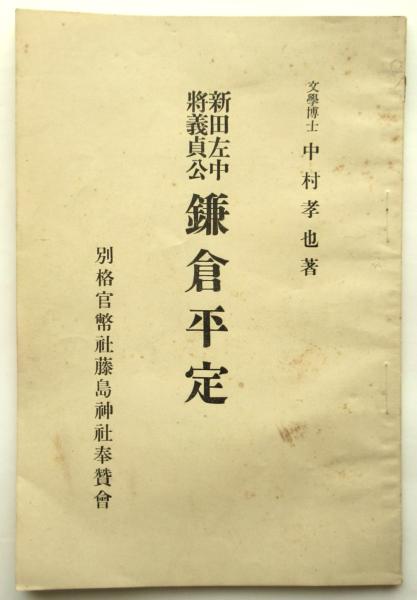 文學博士 中村孝也著
新田左中
將義貞公
鎌倉平定
別格官幣社藤島神社奉贊會